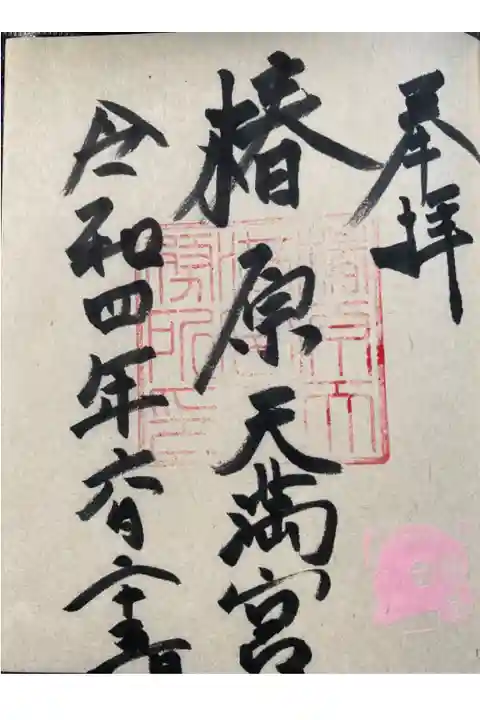 奉拝
椿原天満宮
令和四年六月二十五日